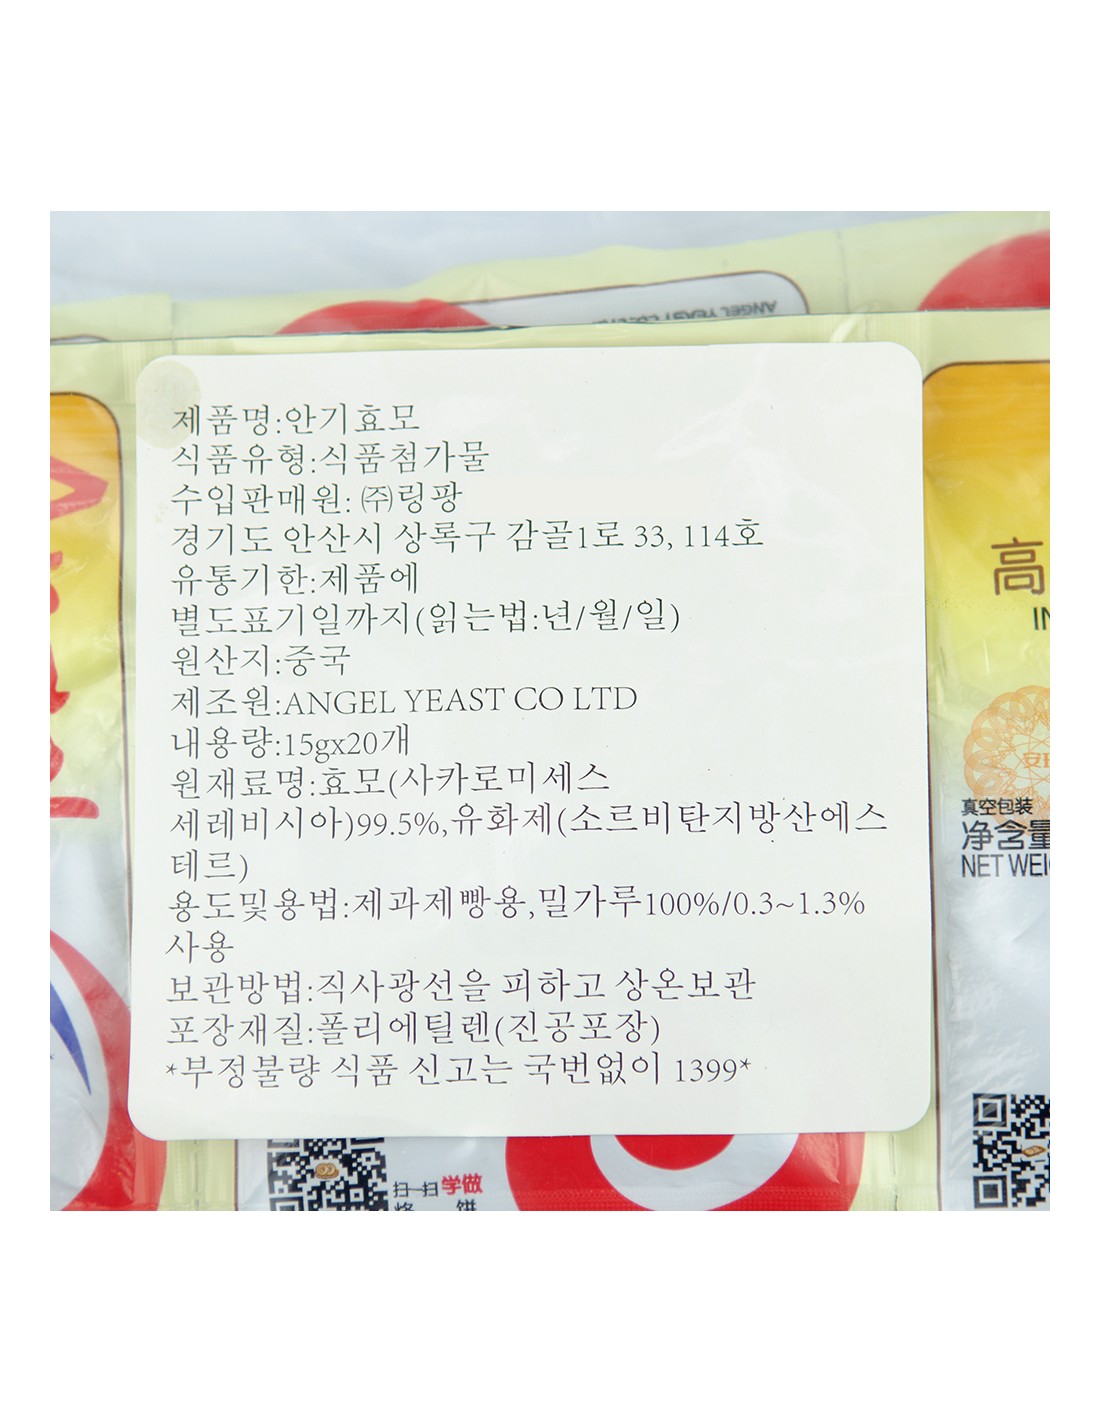 ANGEL YEAST
제품명:안기효모
식품유형:식품첨가물
수입판매원: ㈜링팡
경기도 안산시 상록구 감골1로 33, 114호
유통기한:제품에
별도표기일까지(읽는법:년/월/일)
원산지:중국
제조원:ANGEL YEAST CO LTD
내용량:15gx20개
원재료명:효모(사카로미세스
세레비시아)99.5%,유화제(소르비탄지방산에스
테르)
용도및용법:제과제빵용,밀가루100%/0.3~1.3%
사용
보관방법:직사광선을 피하고 상온보관
포장재질:폴리에틸렌(진공포장)
*부정불량 식품 신고는 국번없이 1399*
高
IN
真空包装
净含量
NET WEI
扫一扫 学做